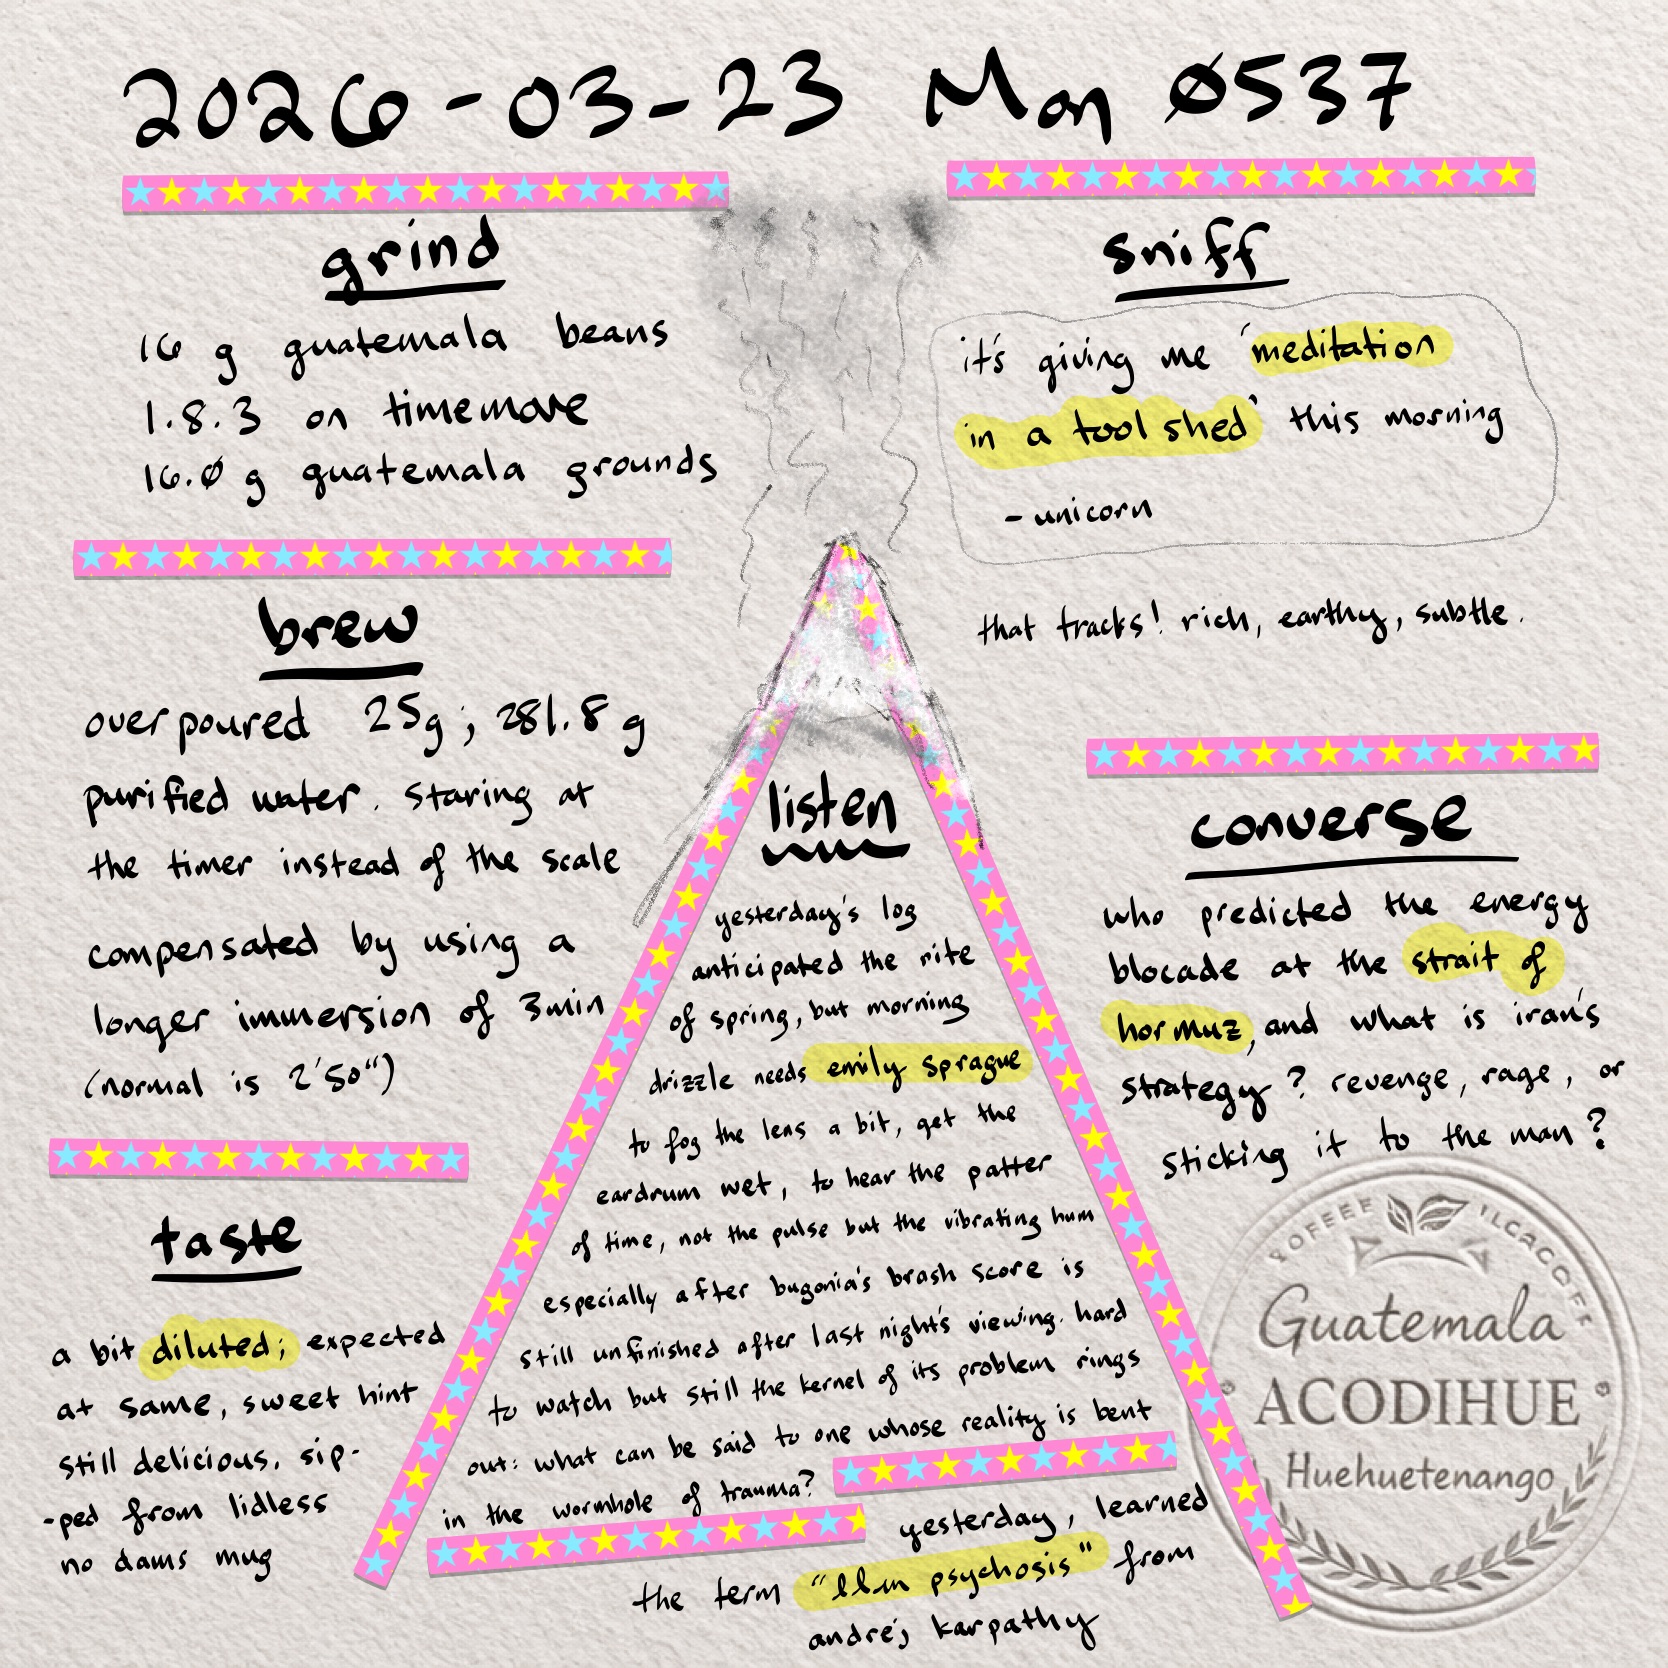 2026-03-23 Mon 0537
grind
16 g guatemala beans
1.8.3 on timemore
16.0 g guatemala grounds
brew
overpoured 25g; 281.8 g
purified water. staring at
the timer instead of the scale
compensated by using a
longer immersion of 3min
(normal is 2'50")
taste
a bit diluted; expected
at same, sweet hint
still delicious. sip-
-ped from lidless
no dams mug
sniff
it's giving me 'meditation
in a tool shed' this morning
- unicorn
that tracks! rich, earthy, subtle.
listen
yesterday's log
anticipated the rite
of spring, but morning
drizzle needs emily sprague
to fog the lens a bit, get the
eardrum wet, to hear the patter
of time, not the pulse but the vibrating hum
especially after bugonia's brash score is
still unfinished after last night's viewing. hard
to watch but still the kernel of its problem rings
out: what can be said to one whose reality is bent
in the wormhole of trauma?
converse
who predicted the energy
blocade at the strait of
hormuz, and what is iran's
strategy? revenge, rage, or
sticking it to the man?
yesterday, learned
the term "llm psychosis" from
andrej karpathy
Guatemala
ACODIHUE
Huehuetenango